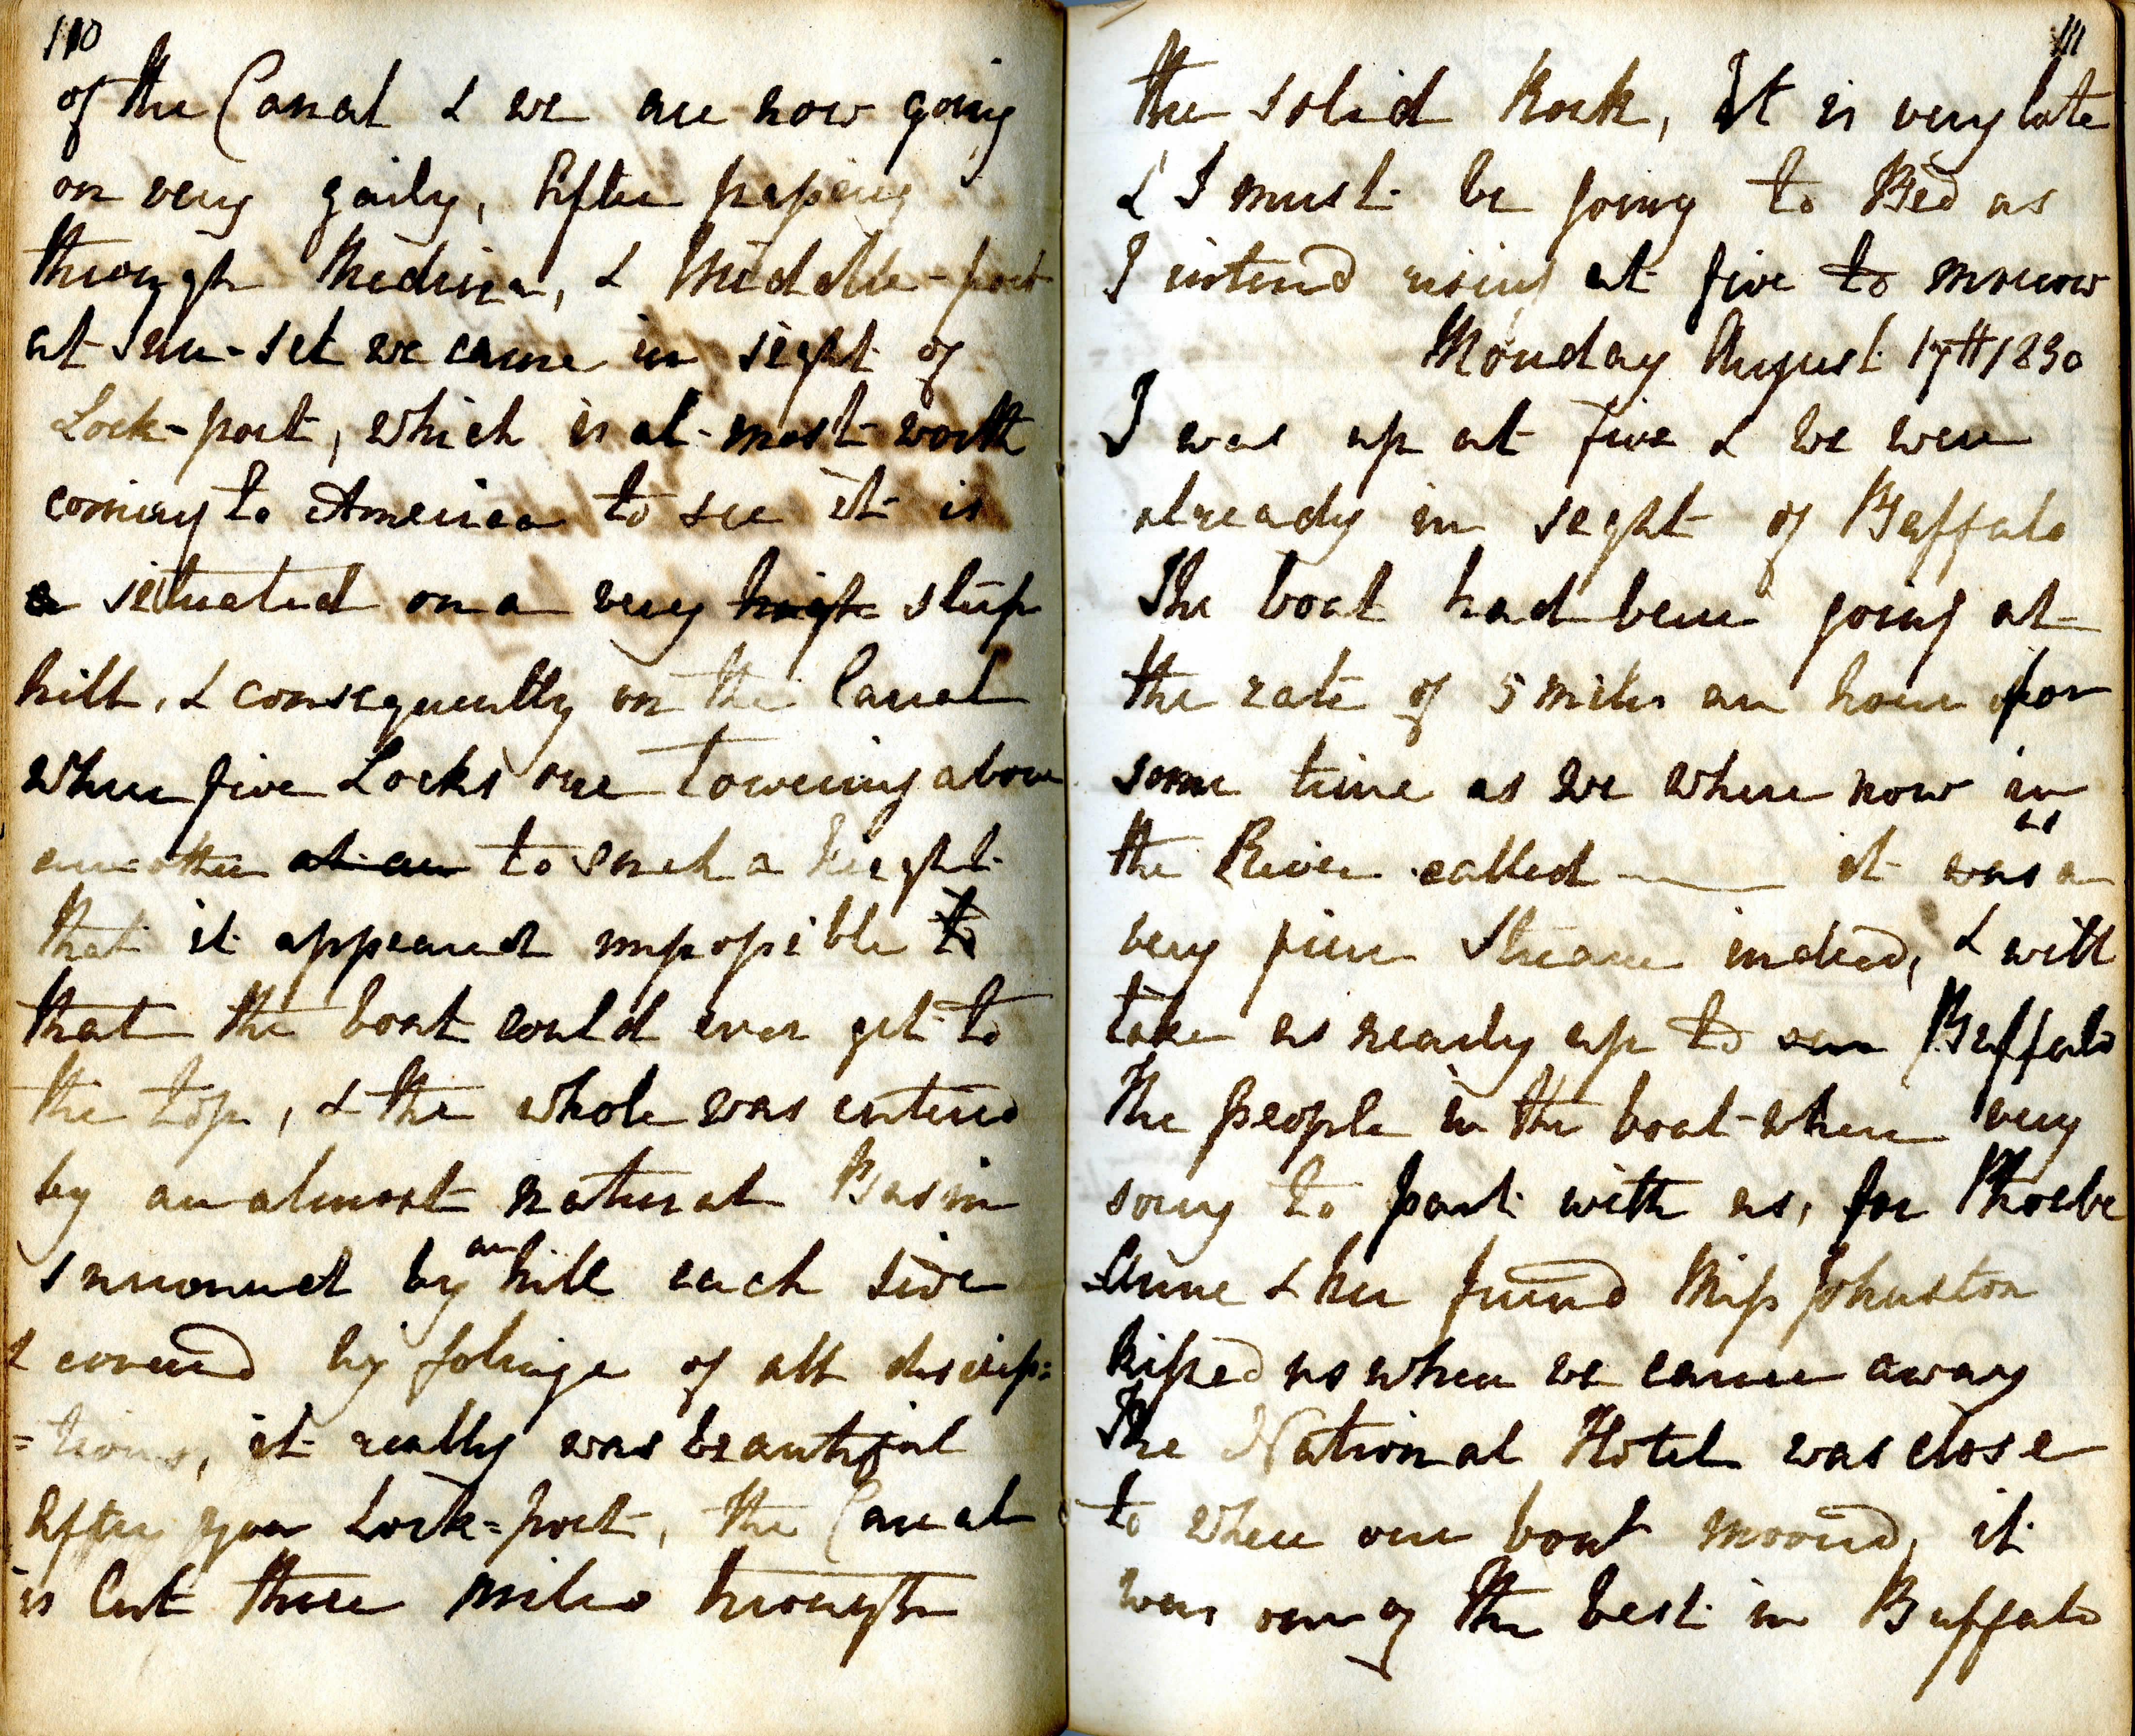 110
of the Canal & we are now going
on very gaily, After passing
through Medina, & Middle-port
at Sun-set we came in sight of
Lock-port, which is al-most worth
coming to America to see it is
a situated on a very high steep
hill, & consequently on the Canal
when five Locks are towering above
another at an to such a height
that it appeared impossible to
that the boat could ever get to
the top, & the whole was entered
by an almost natural Basin
surround by an hill each side
& covered by foliage of all discrip=
=tions, it really was beautiful
After you Lock=port, the Canal
is Cut three miles through
111
the solid Rock, It is very late
& I must be going to Bed as
I intend rising at five to morrow
Monday August 17th 1830
I was up at five & we were
already in seght of Buffalo
The boat had been going at
the rate of 5 miles an hour for
some time as we where now in
the River called —— it was as a
very fine Stream indeed, & will
take us nearly up to Buffalo
The people in the boat where very
sorry to part with us, for Phoebe
Anne & her friend Miss Johnston
kissed us when we came away
The National Hotel was close
to where our boat moored, it
was one of the best in Buffalo